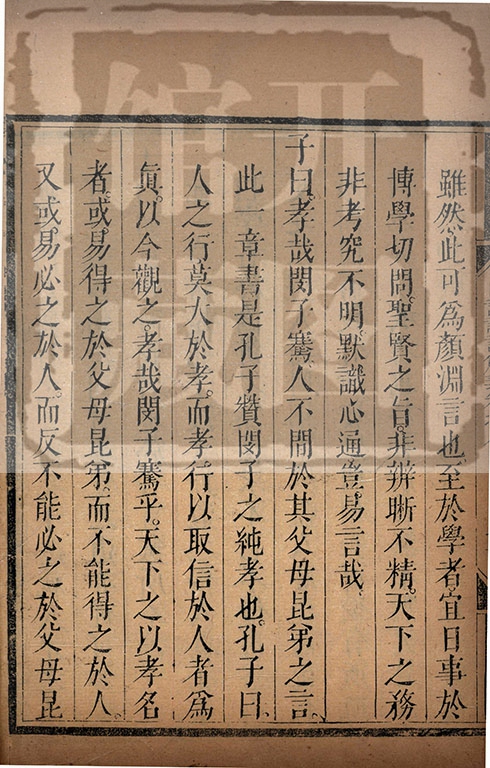 雖然此可爲顏淵言也至於學者宜日事於
博學切問聖賢之旨非辨晣不精天下之務
非考究不明默識心通豈易言哉
子曰孝哉閔子騫人不間於其父母昆弟之言
此一章書是孔子贊閔子之純孝也孔子曰
人之行莫大於孝而孝行以取信於人者爲
眞以今觀之孝哉閔子騫乎天下之以孝名
者或易得之於父母昆弟而不能得之於人
又或易必之於人而反不能必之於父母昆